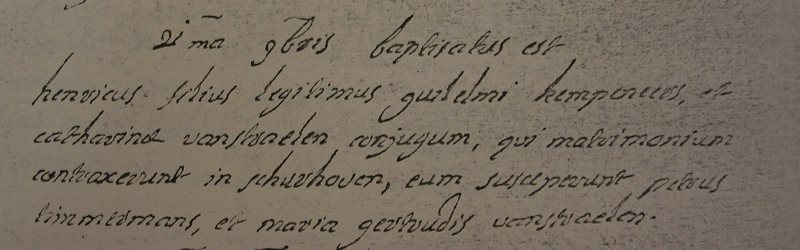 21ma 9bris baptisatus est
henricus filius legitimus guilelmi kempeneers, et
catharinæ vanstraelen conjugum, qui matrimonium
contraxerunt in schurhoven, eum susceperunt petrus
timmermans, et maria gertrudis vanstraelen.